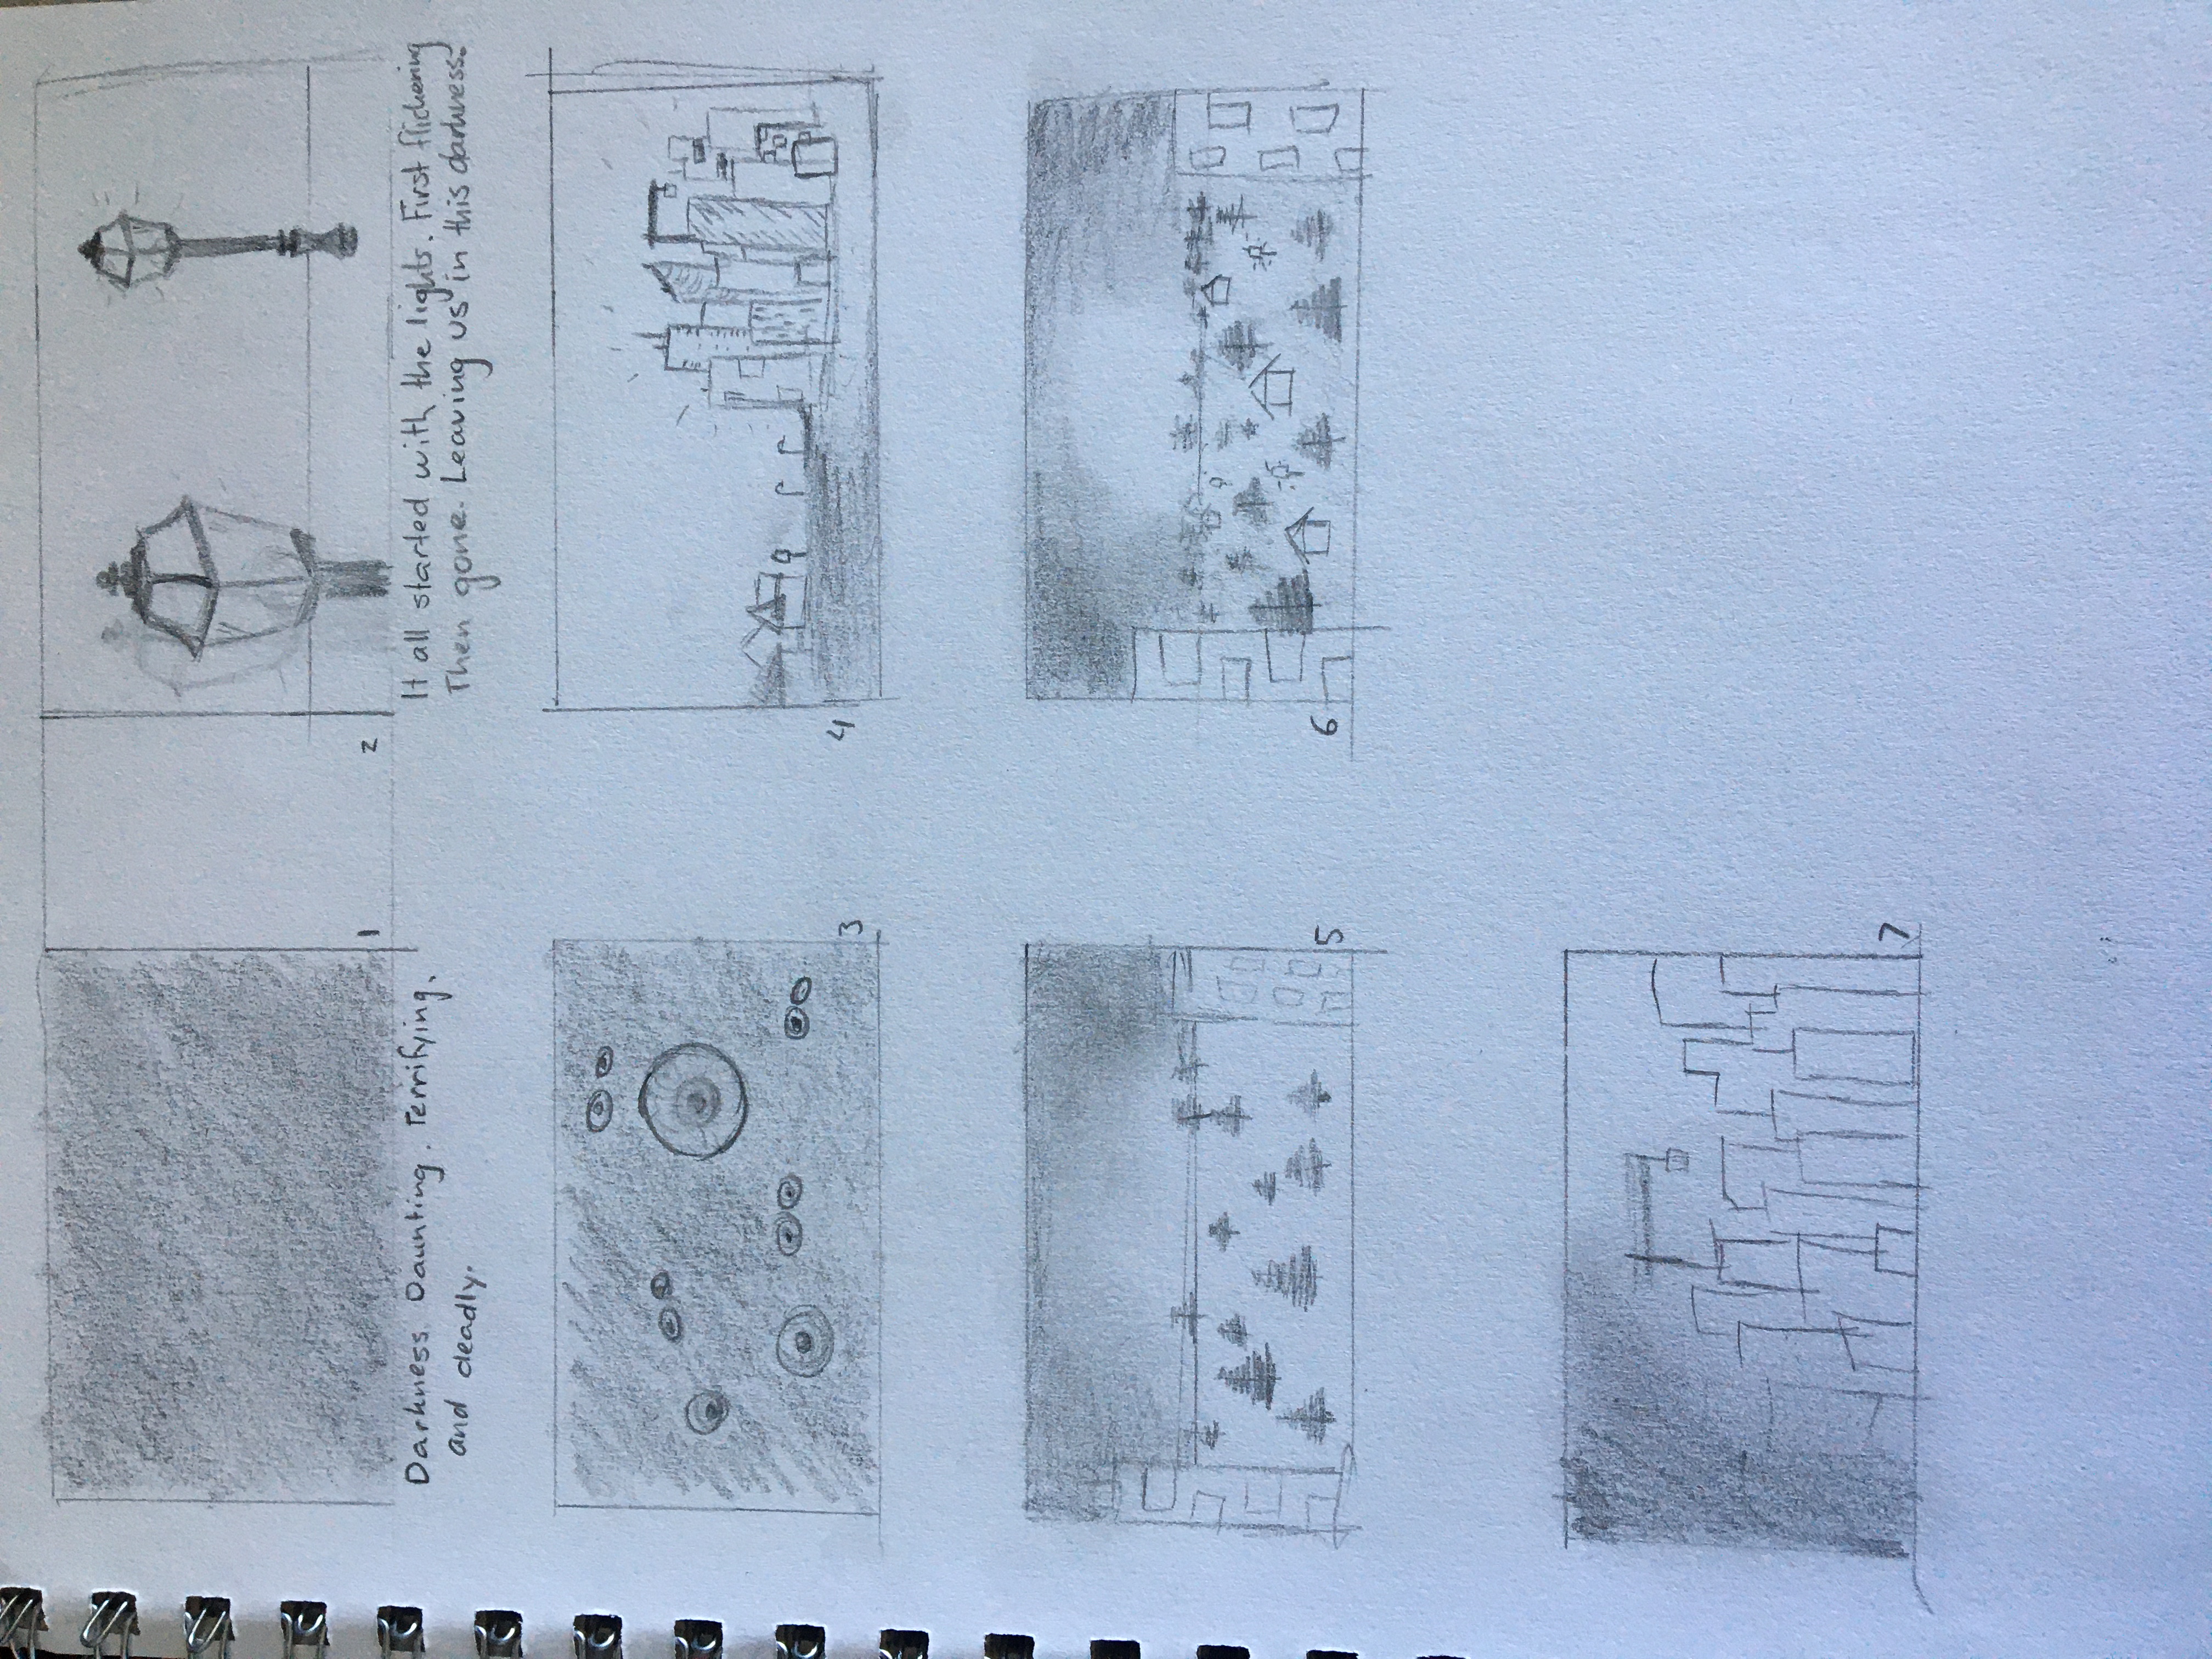 1
2
Darkness. Daunting. Terrifying.
and deadly.
It all started with the lights. First flickering
Then gone. Leaving us in this darkness.
3
4
5
6
7